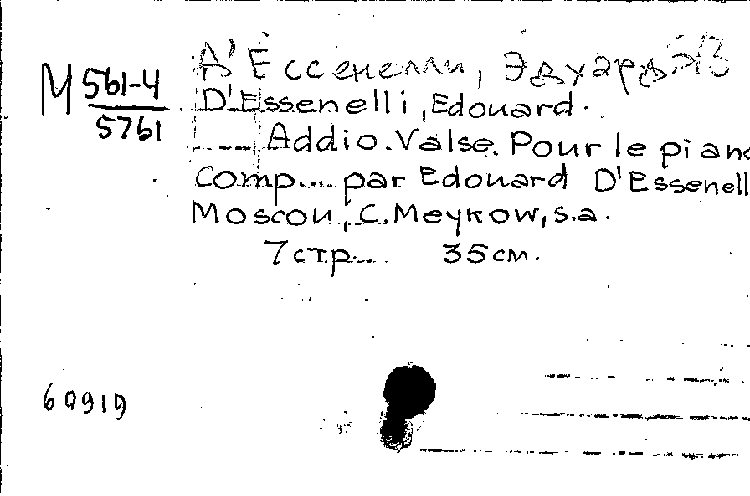 Д'Ессенелли, Эдуард
М 561-4
5761
D'Essenelli, Edouard.
Addio. Valse. Pour le piano
comp... par Edouard D'Essenell
Moscou, C. Meykow, s.a.
7 стр... 35 см.
69919